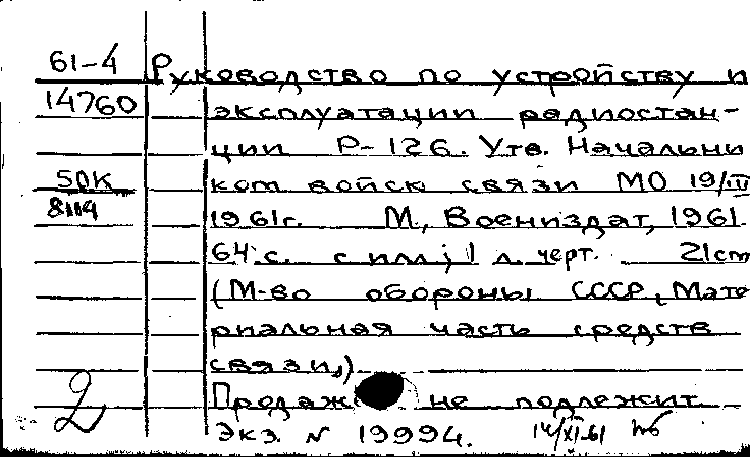 61-4 Руководство по устройству и
14760 эксплуатации радиостан-
ции Р-126. Утв. Начальни
50К ком войск связи МО 19/III
8114 1961г. М, Воениздат, 1961
64 с. с илл; 1 л. черт. 21cm
(М-во обороны СССР, Мате
риальная часть средств
связи,)
Продаж не подлежит
2 Экз. N 19994. 14/XI-61